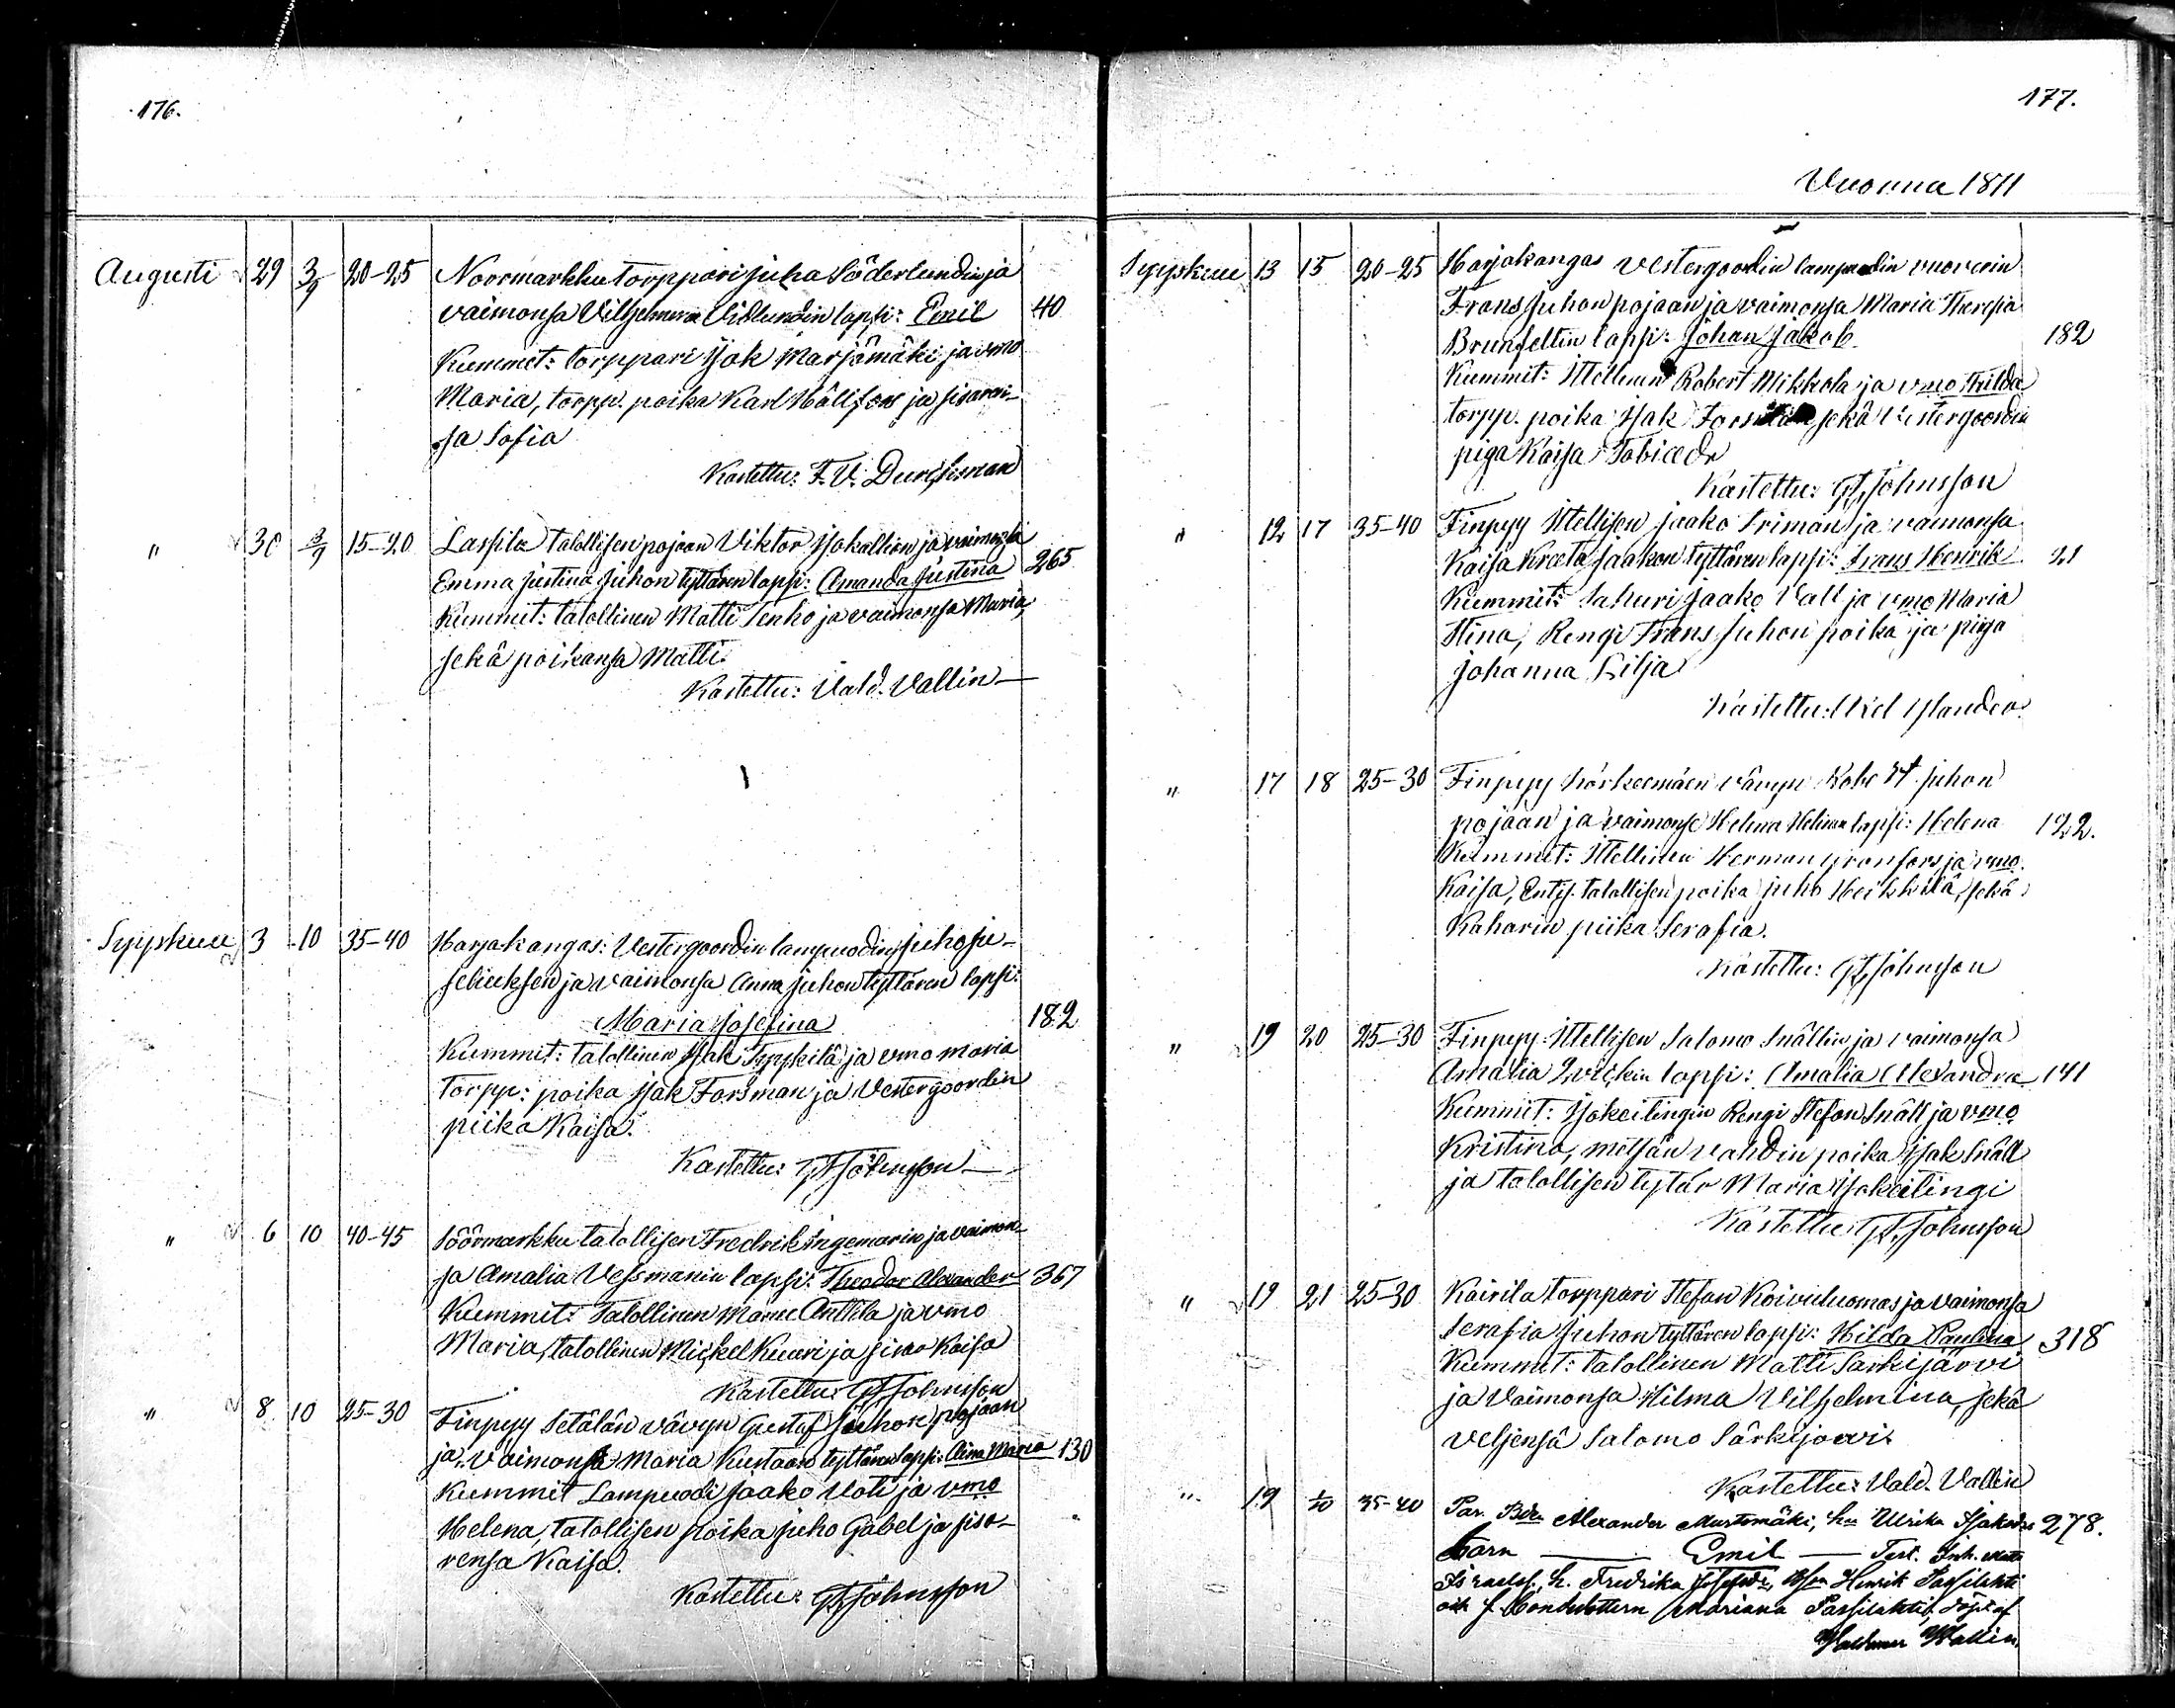 176.
Augusti 29 3/9 20-25 Noormarkku torppari Juha Söderlundin ja
vaimonsa Vilhelmina Vidlundin lapsi: Emil 40
Kummit: torppari Isak Marjämäki ja vmo
Maria, torpp. poika Karl Hällfors ja sisaren-
sa Sofia
Kastettu: F. V. Durchman
" 30 3/9 15-20 Lassila talollisen pojaan Viktor Isokallion ja vaimonsa
Emma Justina Juhon tyttären lapsi: Amanda Justina 265
Kummit: talollinen Matti Tenho ja vaimonsa Maria,
sekä poikansa Matti.
Kastettu: Vald. Vallin
Syyskuu 3 10 35-40 Harjakangas: Vestergoordin lampuodin Juho Ju-
seliuksen ja vaimonsa Anna Juhon tyttären lapsi:
Maria Josefina 182
Kummit: talollinen Isak Syyskilä ja vmo Maria
Torpp: poika Isak Forsman ja Vestergoordin
piika Kaisa.
Kastettu: Johnsson
" 6 10 40-45 Söörmarkku talollisen Fredrik Ingemarin ja vaimon-
sa Amalia Vessmanin lapsi: Theodor Alexander 367
Kummit: Talollinen Anttila ja vmo
Maria, talollinen Mickel Kuuri ja Kaisa
Kastettu: Johnsson
" 8 10 25-30 Finpyy Setälän vävyn Gustaf Juhon pojaan
ja vaimonsa Maria Kustaan tyttären lapsi: Aina Maria 130
Kummit Lampuodi Jaako Uoti ja vmo
Helena, talollisen poika Juho Gabel ja sisa-
rensa Kaisa.
Kastettu: Johnsson
177.
Vuonna 1871
Syyskuu 13 15 20-25 Harjakangas Vestergoordin lampuodin vuoverin
Frans Juhon pojaan ja vaimonsa Maria Theresia
Brunfeltin lapsi: Johan Jakob 182
Kummit: Itellinen Robert Mikkola ja vmo Hilda
torpp. poika Isak Forsman sekä Vestergoordin
piga Kaisa Tobiaedr
Kastettu: Johnsson
" 12 17 35-40 Finpyy Itellisen Jaako Friman ja vaimonsa
Kaisa Kreeta Jaakon tyttären lapsi: Frans Henrik 21
Kummit: Sahuri Jaako Vall ja vmo Maria
Stina, Rengi Frans Juhon poika ja piga
Johanna Lilja
Kastettu: Axel Ylander.
" 17 18 25-30 Finpyy Härkeemäen vävyn Robert Juhon
pojaan ja vaimonse Helena Helinin lapsi: Helena 122.
Kummit: Itellinen Herman Granfors ja vmo
Kaisa, Entis. talollisen poika Juho Heikkilä, sekä
Kaharin piika Serafia.
Kastettu: Johnsson
" 19 20 25-30 Finpyy Itellisen Salomo Snällin ja vaimonsa
Amalia Qvickin lapsi: Amalia Alexandra 141
Kummit: Isokeitingin Rengi Stefan Snäll ja vmo
Kristina, metsän vahdin poika Isak Snäll
ja talollisen tytär Maria Isokeitingi
Kastettu: Johnsson
" 19 21 25-30 Kairila torppari Stefan Koivuluomas ja vaimonsa
Serafia Juhon tyttären lapsi: Hilda Paulina 318
Kummit: talollinen Matti Särkijärvi
ja Vaimonsa Hilma Vilhelmina, sekä
veljensä Salomo Särkijärvi.
Kastettu: Vald. Vallin
" 19 1/10 35-40 Par. Alexander Mustomäki, hu Ulrika Isaksdr 278.
barn Emil Test. Inh. Matts
Israelss., h. Fredrika Josefsdr, Henrik Passilahti
och Bondedottern Mariana Passilahti, döpt af
Waldemar Wallin.